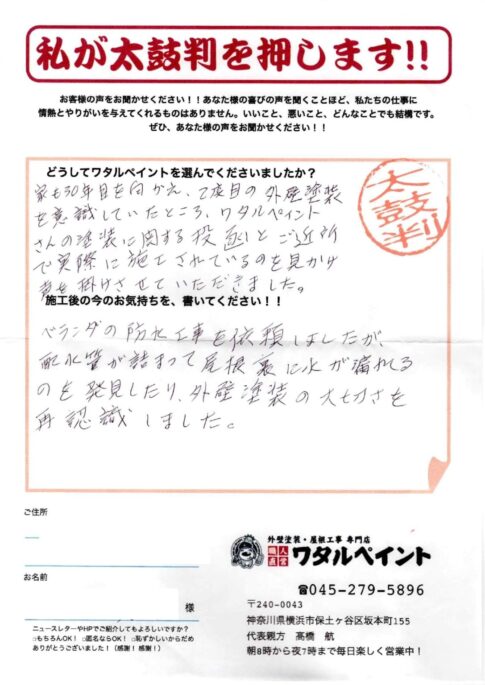 私が太鼓判を押します!!
お客様の声をお聞かせください！！あなた様の喜びの声を聞くことほど、私たちの仕事に
情熱とやりがいを与えてくれるものはありません。いいこと、悪いこと、どんなことでも結構です。
ぜひ、あなた様の声をお聞かせください！！
どうしてワタルペイントを選んでくださいましたか？
太鼓判
家も30年目を向かえ、2度目の外壁塗装
を意識していたところ、ワタルペイント
さんの塗装に関する投函とご近所
で実際に施工されているのを見かけ
声を掛けさせていただきました。
施工後の今のお気持ちを、書いてください！！
ベランダの防水工事を依頼しましたが、
配水管が詰まって屋根裏に水が漏れてる
のを発見したり、外壁塗装の大切さを
再認識しました。
ご住所
お名前
様
ニュースレターやHPでご紹介してもよろしいですか？
□もちろんOK！ □匿名ならOK！ □恥ずかしいからだめ
ありがとうございました！（感謝！感謝！）
外壁塗装・屋根工事 専門店
職人直営 ワタルペイント
☎045-279-5896
〒240-0043
神奈川県横浜市保土ヶ谷区坂本町155
代表親方 髙橋 航
朝8時から夜7時まで毎日楽しく営業中！